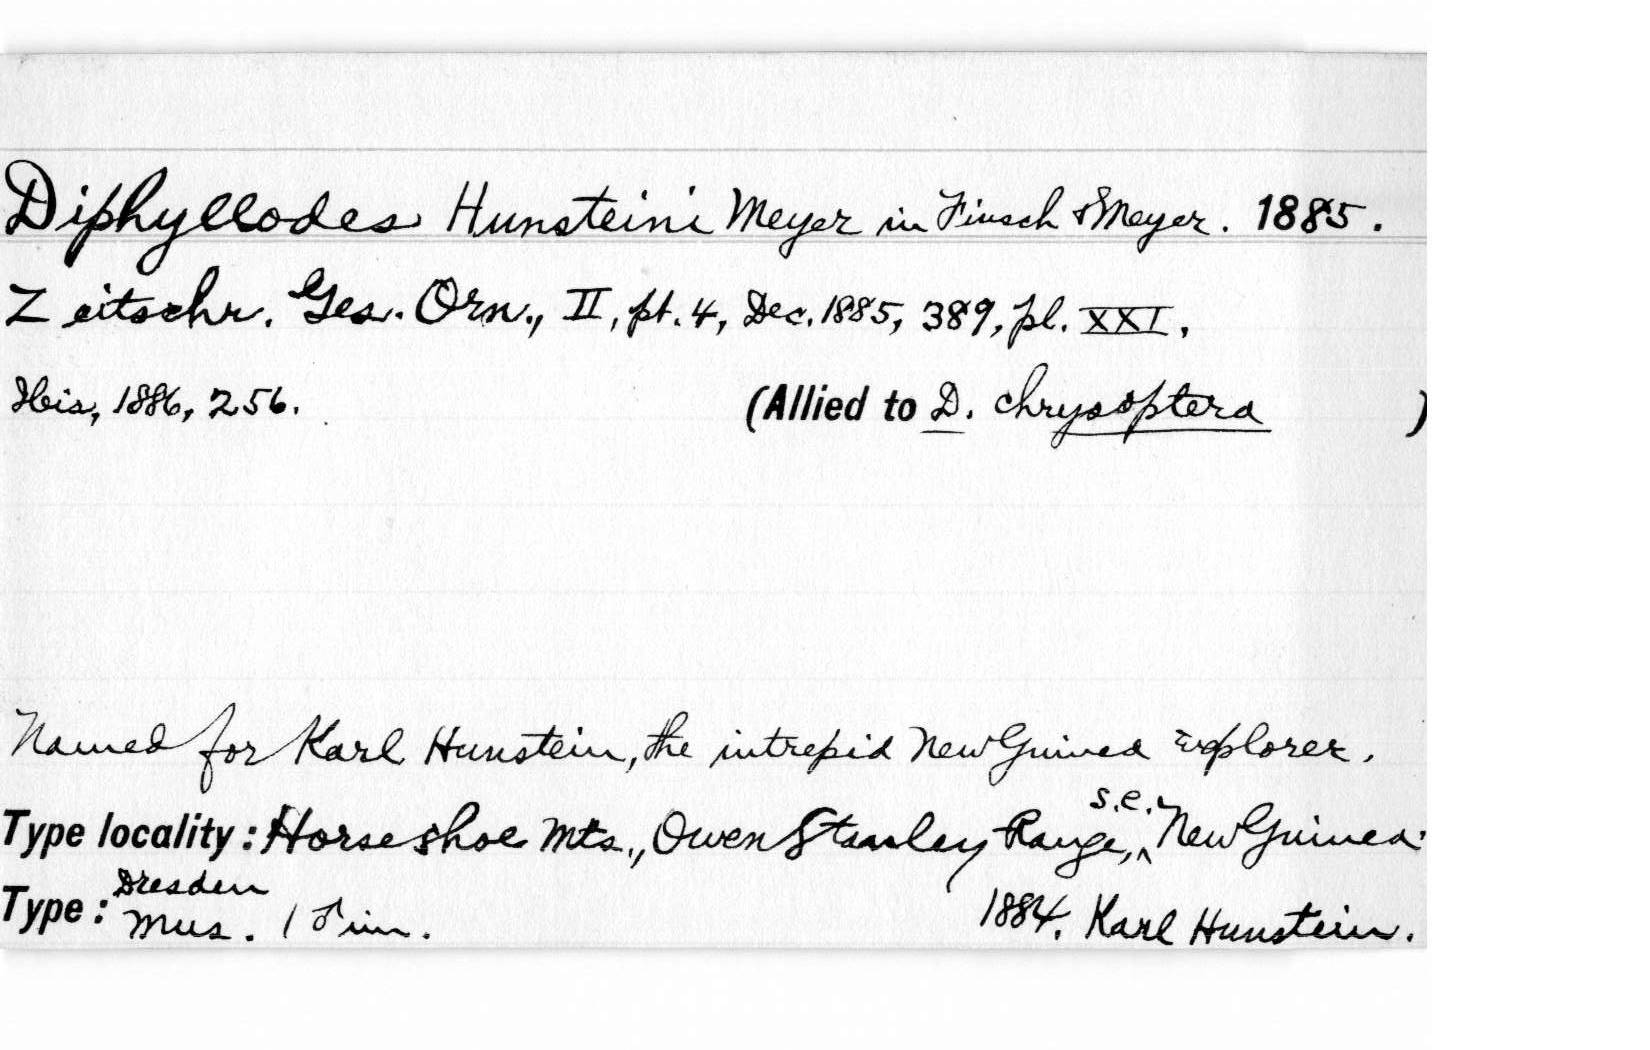 Diphyllodes Hunsteini Meyer in Finsch & Meyer. 1885.
Zeitschr. Ges. Orn., II, pt. 4, Dec. 1885, 389, pl. XXI.
Ibis, 1886, 256. (Allied to D. chrysoptera )
Named for Karl Hunstein, the intrepid New Guinea explorer.
Type locality: Horseshoe Mts., Owen Stanley Range, s.e. New Guinea.
Type: Dresden Mus. 1 ♂ im. 1884. Karl Hunstein.